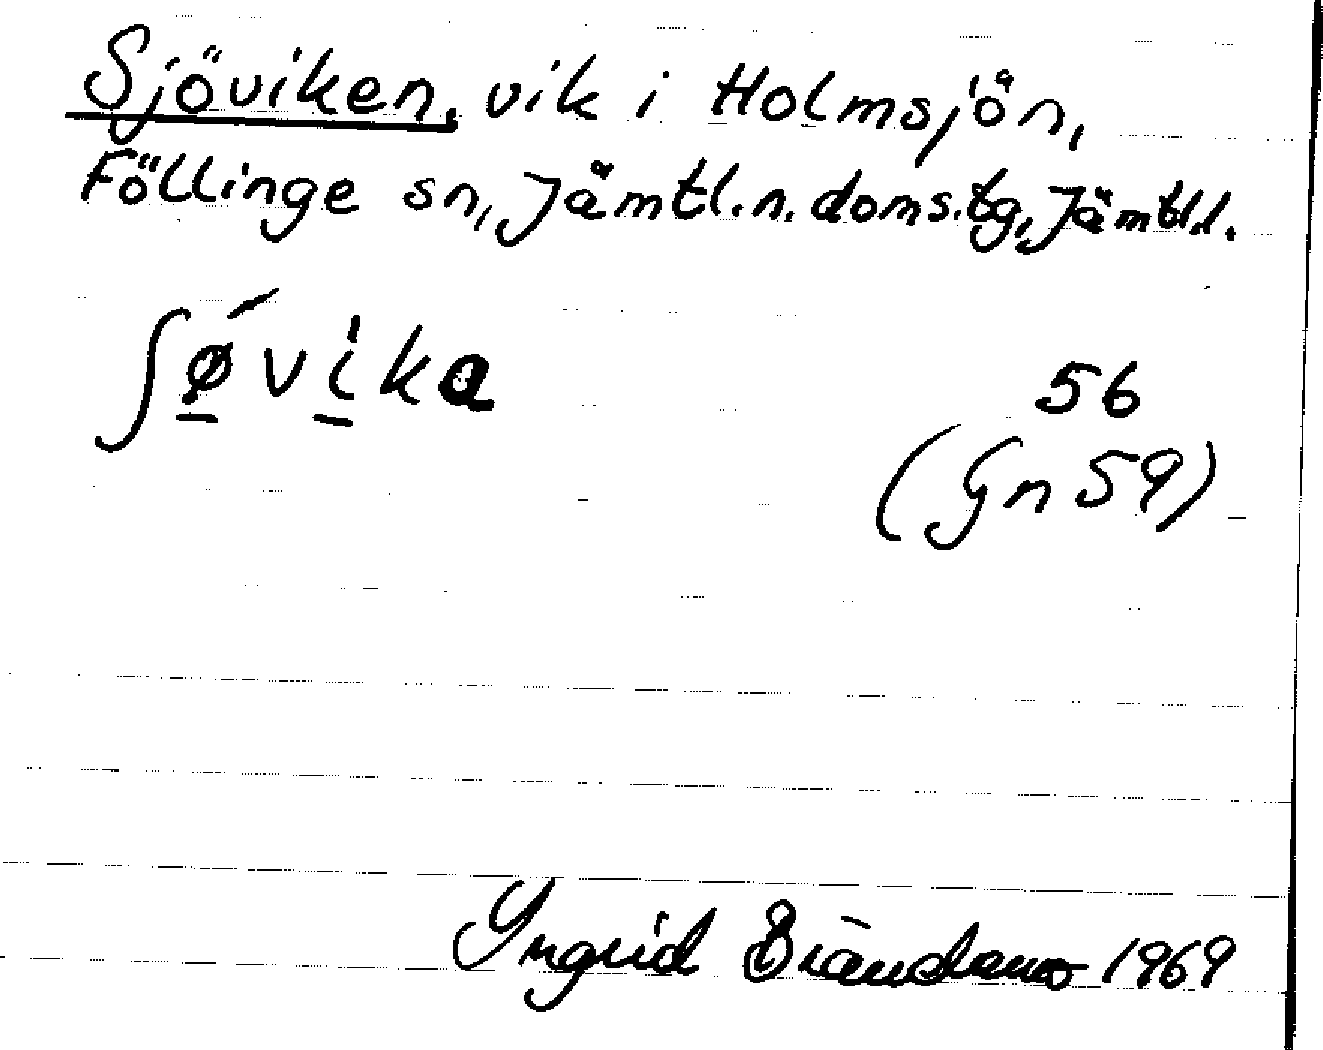 Sjöviken, vik i Holmsjön,
Föllinge sn, Jämtl. n. doms. tg, Jämtl. l.
ʃø´vika
56
(Gn 59)
Ingrid Brändamo 1969